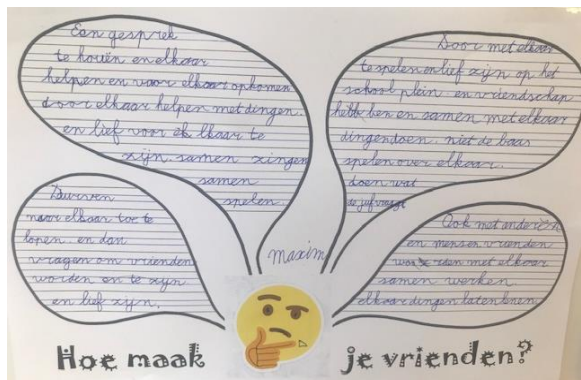 Een gesprek
te houën en elkaar
helpen en voor elkaar opkomen
door elkaar helpen met dingen.
en lief voor elkaar te
zijn. samen zingen
samen
spelen.
Door met elkaar
te spelen en lief zijn op het
school plein en vriendschap
hebben en samen met elkaar
dingen doen. niet de baas
spelen over elkaar.
doen wat
de juf vraagt
Durven
naar elkaar toe te
lopen. en dan
vragen om vrienden
worden en te zijn
en lief zijn.
Ook met andere
en mensen vrienden
worden met elkaar
samen werken
elkaar dingen laten lenen
maxim
Hoe maak je vrienden?